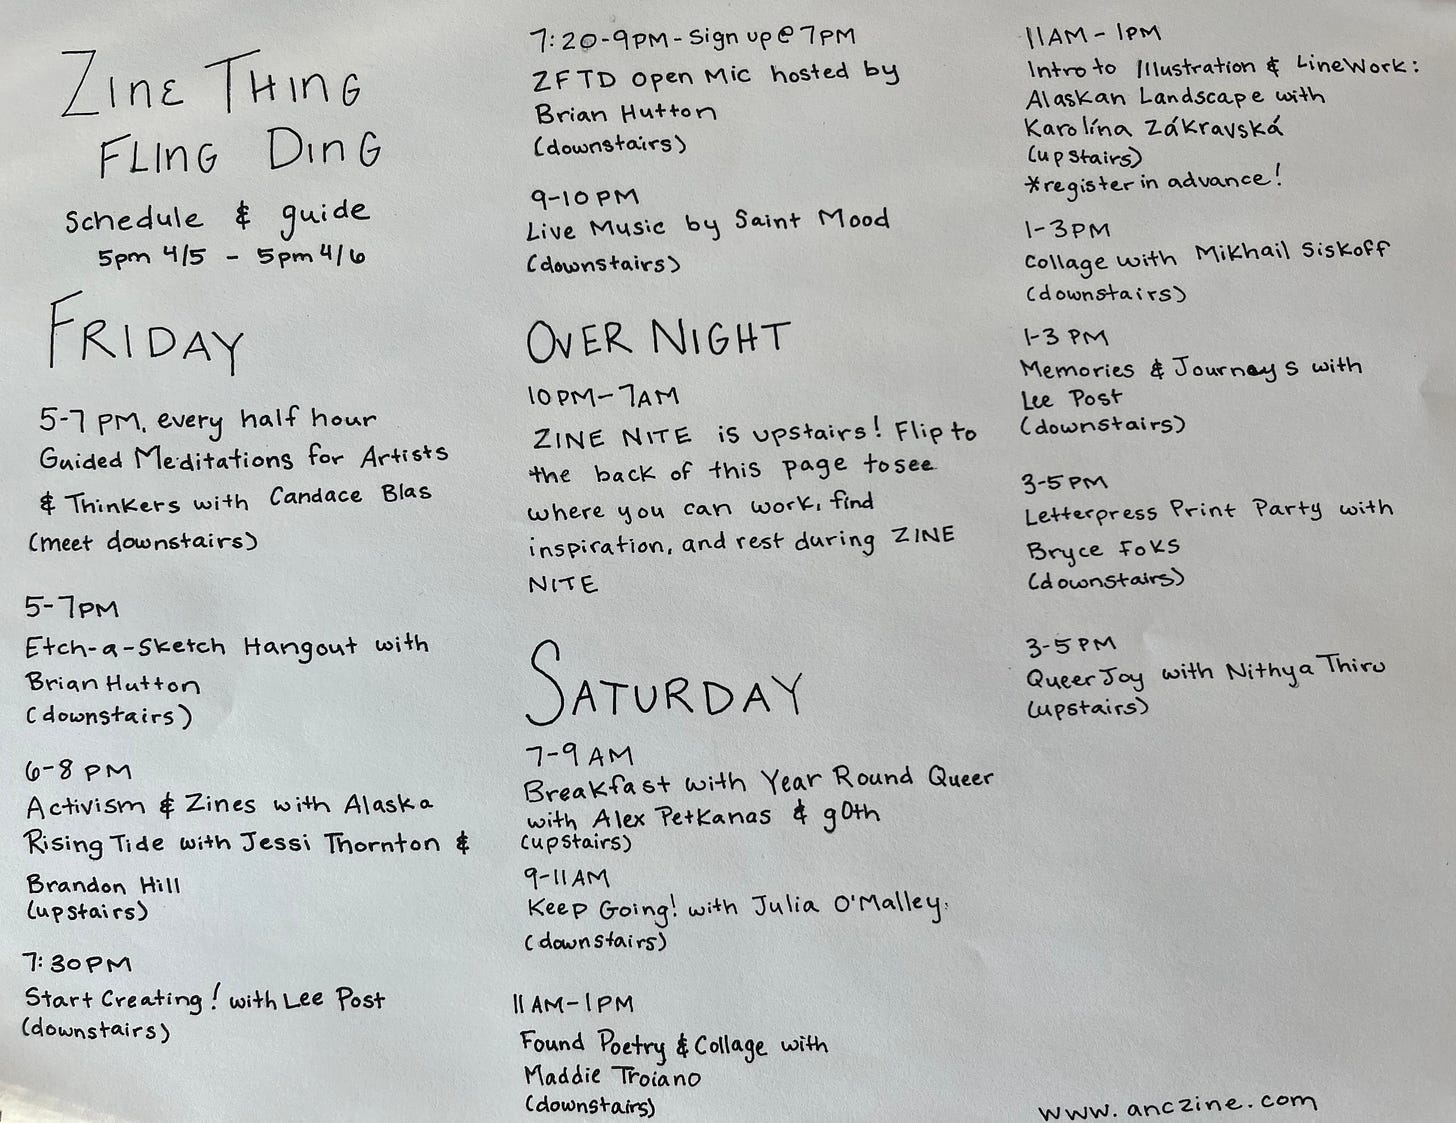 ZINE THING
FLING DING
Schedule & guide
5pm 4/5 - 5pm 4/6
FRIDAY
5-7 PM, every half hour
Guided Meditations for Artists
& Thinkers with Candace Blas
(meet downstairs)
5-7PM
Etch-a-Sketch Hangout with
Brian Hutton
(downstairs)
6-8 PM
Activism & Zines with Alaska
Rising Tide with Jessi Thornton &
Brandon Hill
(upstairs)
7:30PM
Start Creating! with Lee Post
(downstairs)
7:20-9PM - Sign up @ 7PM
ZFTD Open Mic hosted by
Brian Hutton
(downstairs)
9-10 PM
Live Music by Saint Mood
(downstairs)
OVER NIGHT
10PM-7AM
ZINE NITE is upstairs! Flip to
the back of this page to see
where you can work, find
inspiration, and rest during ZINE
NITE
SATURDAY
7-9 AM
Breakfast with Year Round Queer
with Alex Petkanas & g0th
(upstairs)
9-11AM
Keep Going! with Julia O'Malley.
(downstairs)
11AM-1PM
Found Poetry & Collage with
Maddie Troiano
(downstairs)
11AM-1PM
Intro to Illustration & LineWork:
Alaskan Landscape with
Karolína Zákravská
(upstairs)
*register in advance!
1-3PM
Collage with Mikhail Siskoff
(downstairs)
1-3 PM
Memories & Journeys with
Lee Post
(downstairs)
3-5PM
Letterpress Print Party with
Bryce Foks
(downstairs)
3-5PM
Queer Joy with Nithya Thiru
(upstairs)
www.anczine.com